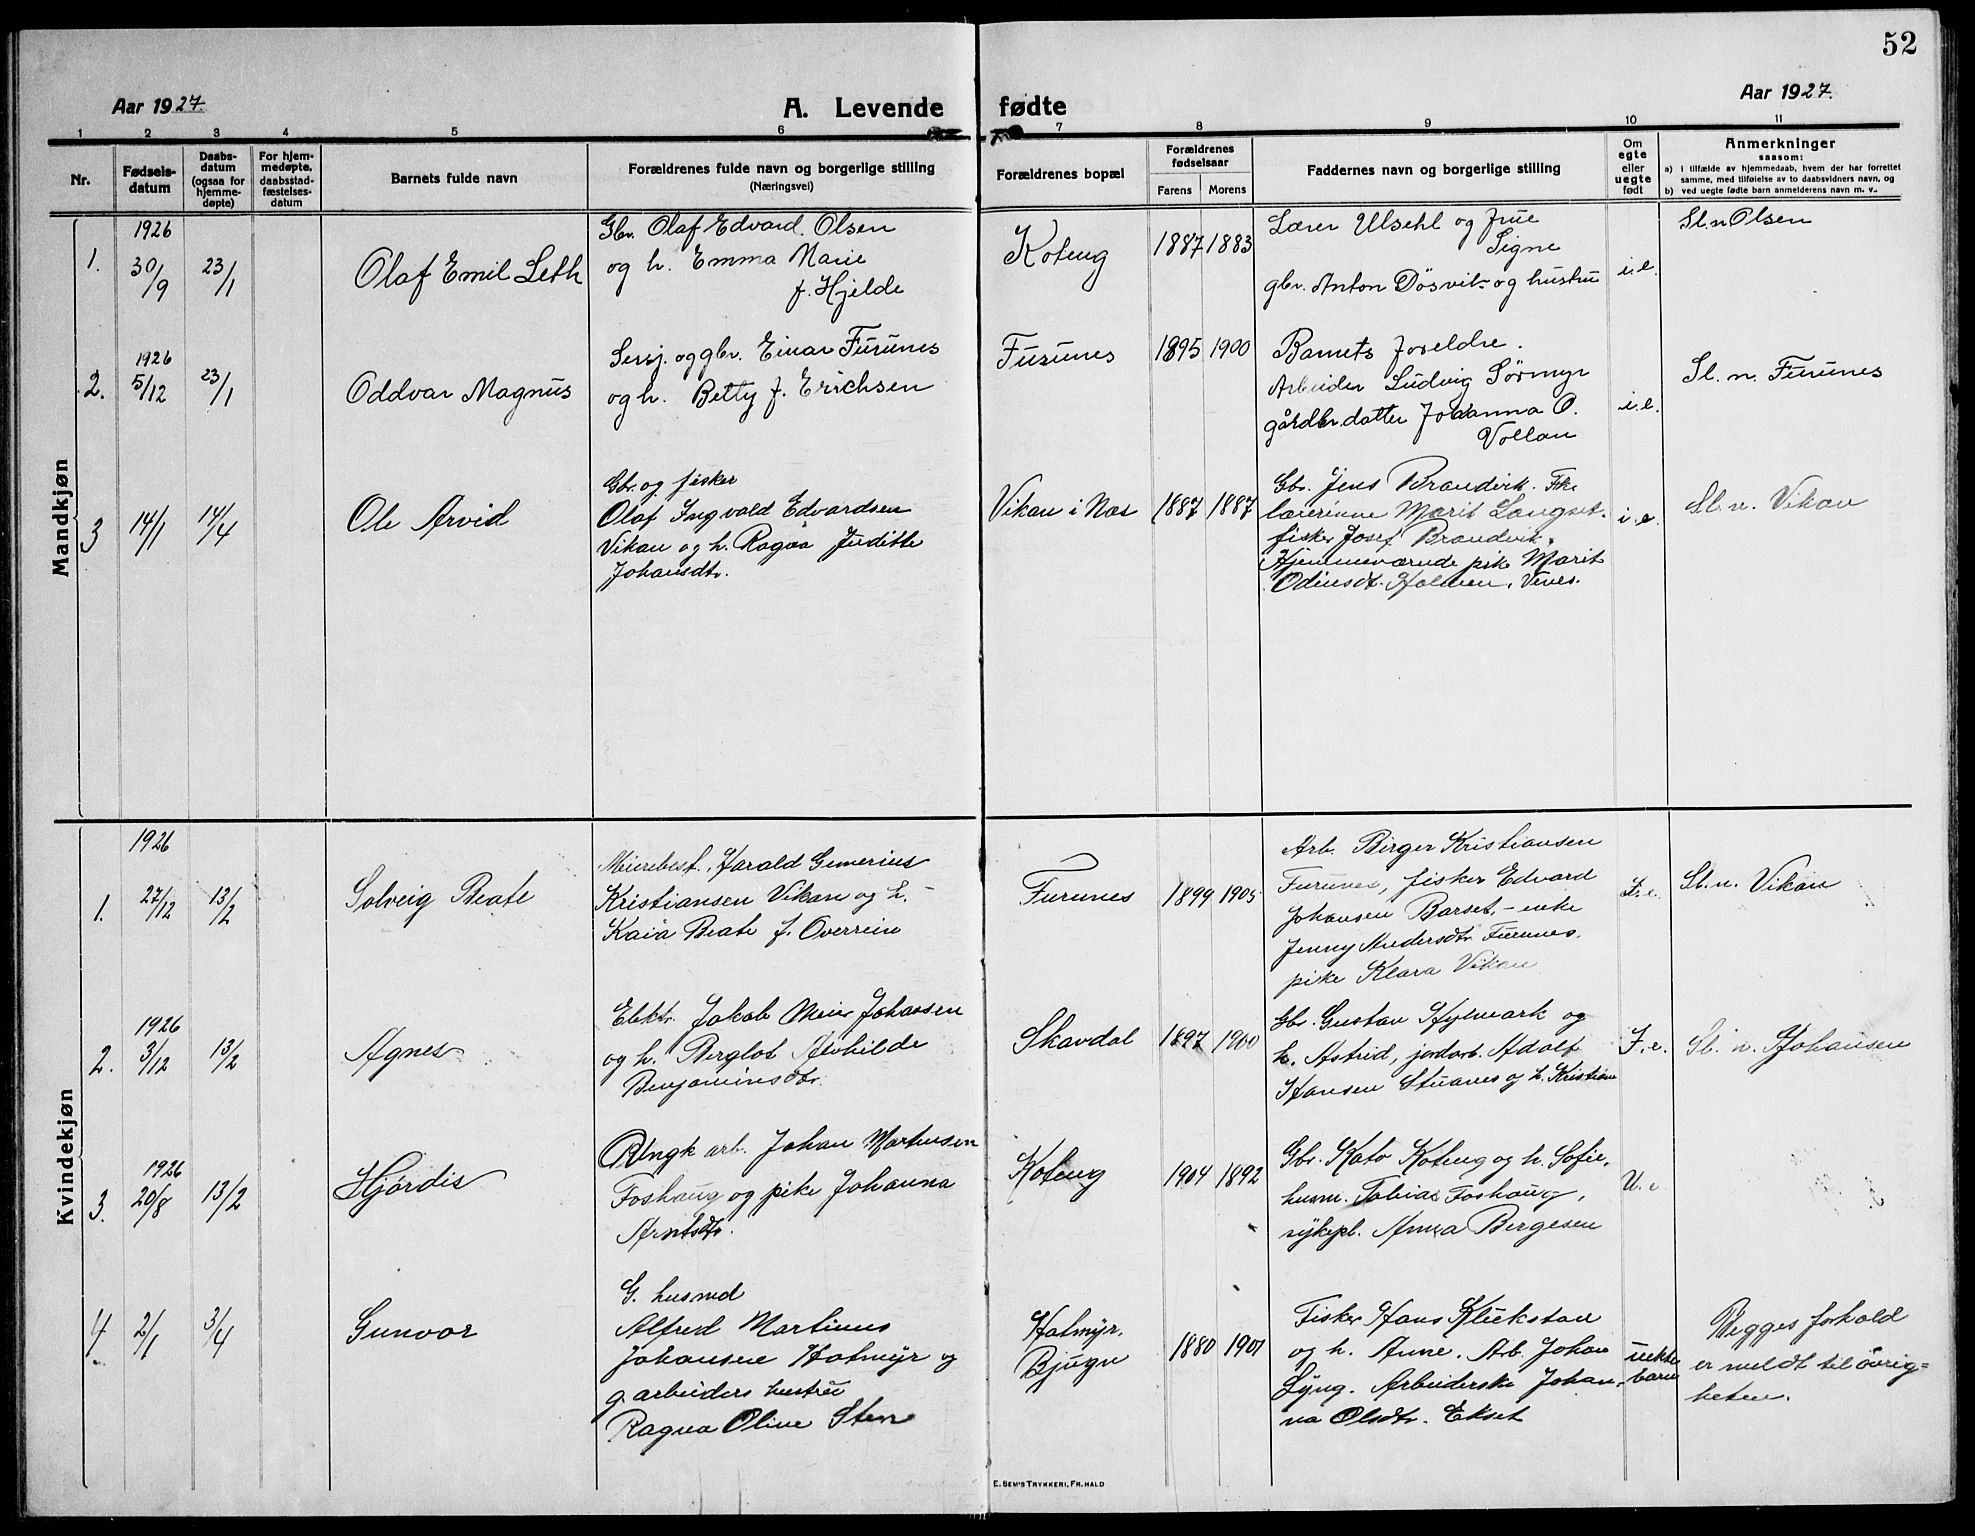 52
Aar 1927.
A. Levende fødte
Aar 1927.
1 2 3 4 5 6 7 8 9 10 11
Nr.
Fødsels-
datum
Daabs-
datum
(ogsaa for
hjemme-
døpte)
For hjem-
medøpte,
daabsstad-
fæstelses-
datum
Barnets fulde navn
Forældrenes fulde navn og borgerlige stilling
(Næringsvei)
Forældrenes bopæl
Forældrenes
fødselsaar
Farens Morens
Faddernes navn og borgerlige stilling
Om
egte
eller
uegte
født
Anmerkninger
saasom:
a) i tilfælde av hjemmedaab, hvem der har forrettet
samme, med tilføielse av to daabsvidners navn, og
b) ved uegte fødte barn anmelderens navn m. v..
Mandkjøn
1.
1926
30/9
23/1
Olaf Emil Leth
Gbr. Olaf Edvard Olsen
og h. Emma Marie
f. Hjelde
Koteng
1887 1883
Lærer Ulsehl og frue
Signe
gbr. Anton Døsvik og hustru
i.e.
Sl.n Olsen
2.
1926
5/12
23/1
Oddvar Magnus
Sersj. og gbr. Einar Furunes
og h. Betty f. Erichsen
Furunes
1895 1900
Barnets foreldre.
Arbeider Ludvig Sørmyr
gårdbr.datter Johanna O.
Vollan
i.e.
Sl. n. Furunes
3
14/1
14/4
Ole Arvid
Gbr. og fisker
Olaf Ingvald Edvardsen
Vikan og h. Ragna Juditte
Johansdtr.
Vikan i Nes
1887 1887
Gbr. Jens Brandvik. Frk.
lærerinne Marit Langset.
fisker Josef Brandvik.
Hjemmeværnde pike Marit
Odinsdt. Holmen, Venes.
i.e.
Sl. n. Vikan
Kvindekjøn
1.
1926
27/12
13/2
Solveig Beate
Meieribest. Harald Gemerius
Kristiansen Vikan og h.
Kaia Beate f. Overrein
Furunes
1899 1905
Arb. Birger Kristiansen
Furunes, fisker Edvard
Johansen Barset, - enke
Jenny Andersdtr Furunes.
pike Klara Vikan
F.e.
Sl. n. Vikan
2.
1926
3/12
13/2
Agnes
Elektr. Jakob Meier Johansen
og h. Berglot Alvhilde
Benjaminsdtr.
Skavdal
1897 1900
Gbr. Gustav Hylmark og
h. Astrid, jordarb. Adolf
Hansen Stuanes og h. Kristine
F.e.
Sl. n. Johansen
3.
1926
20/8
13/2
Hjørdis
Ungk. arb. Johan Martinsen
Foshaug og pike Johanna
Arntsdtr.
Koteng
1904 1892
Gbr. Kato Koteng og h. Sofie,
husm. Tobias Foshaug,
sykepl. Anna Bergesen
U.e
4.
2/1
3/4
Gunvor
G. husmd
Alfred Martinus
Johansen Hatmyr og
g. arbeiders hustru
Ragna Oline Sten
Hatmyr,
Bjugn
1880 1901
Fisker Hans Klukstan
og h. Anne. Arb. Johan
Lyng. Arbeiderske Johan-
na Olsdtr. Ekset
uekte
barn
Begges forhold
er meldt til øvrig=
heten.
E. SEM'S TRYKKERI, FR.HALD